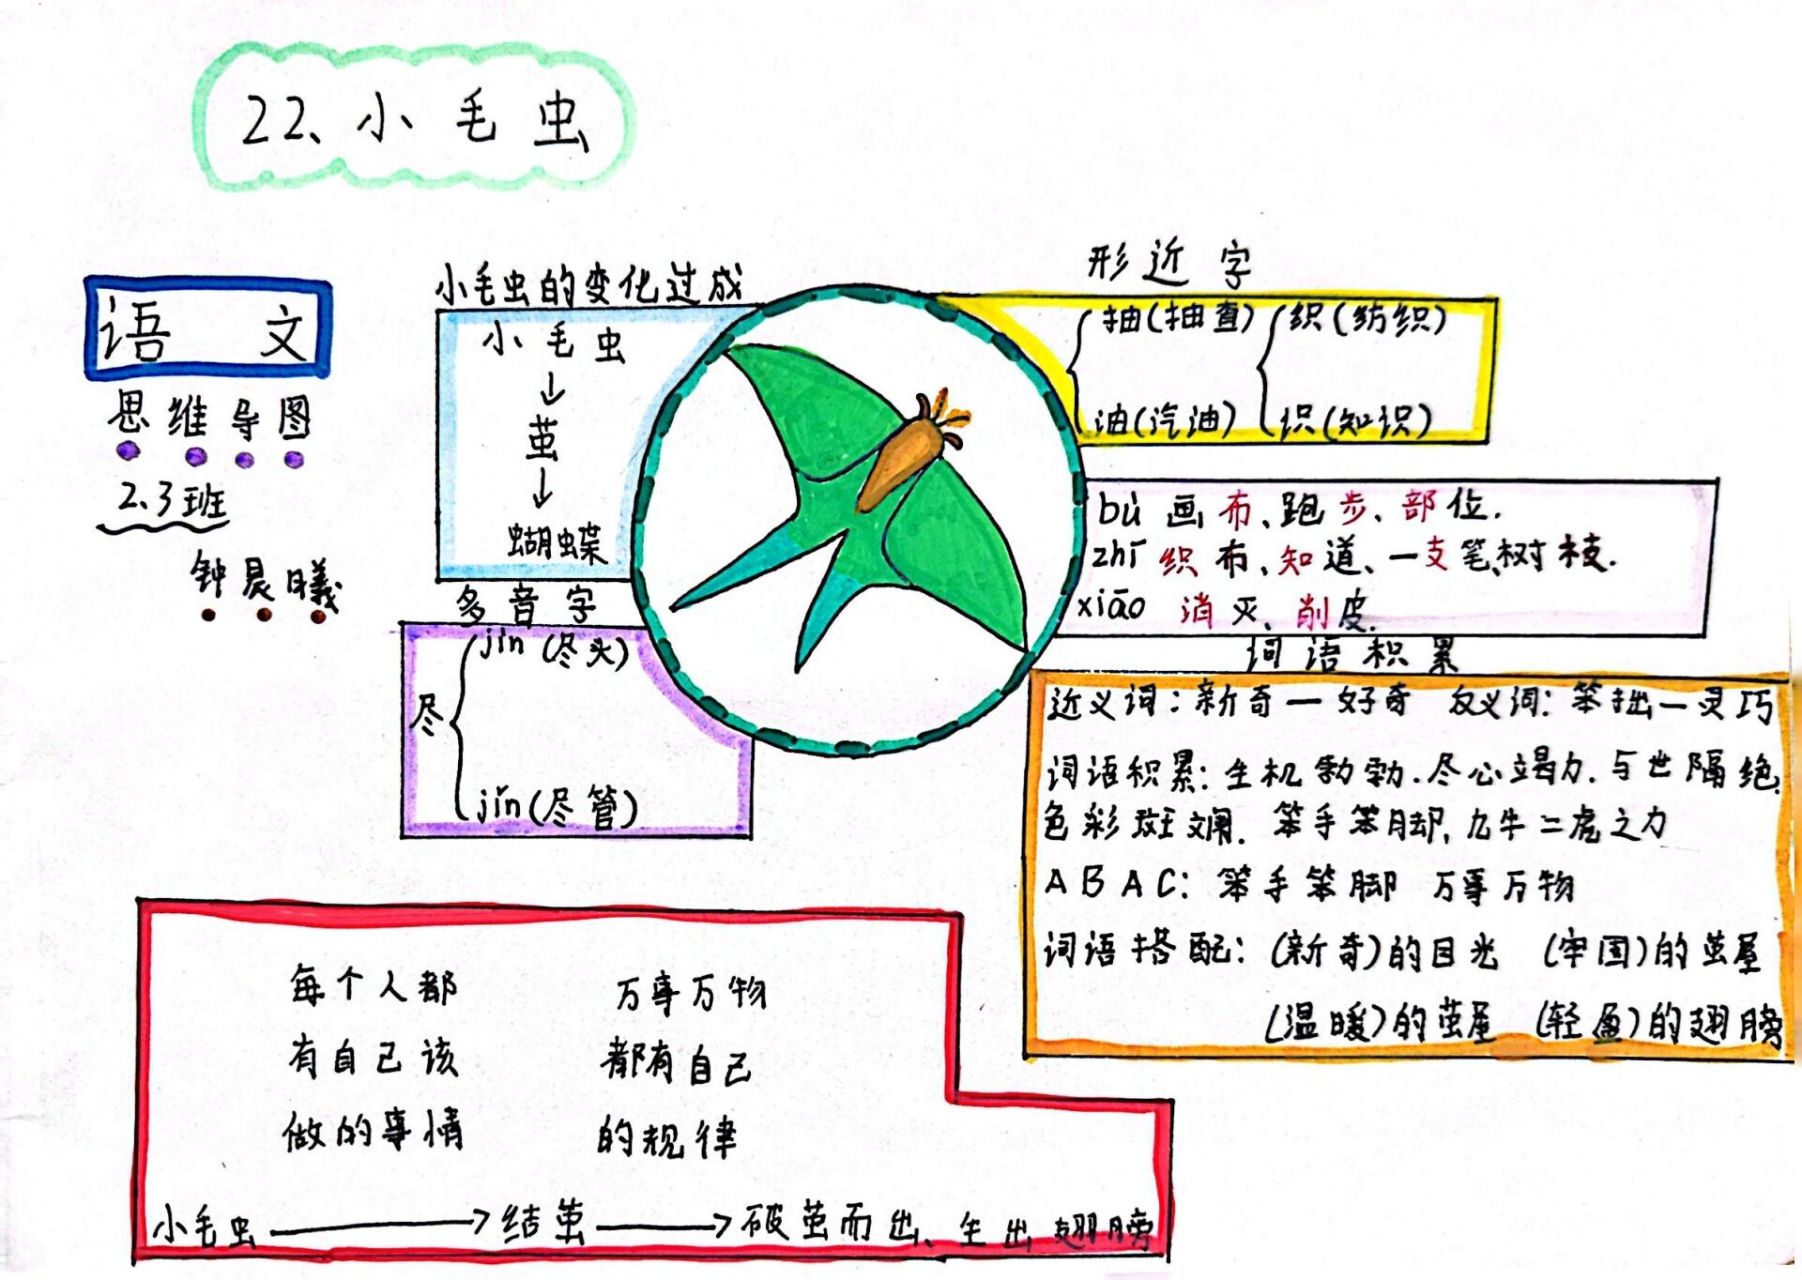 22、小毛虫
语 文
思维导图
2.3班
钟晨曦
小毛虫的变化过成
小毛虫
↓
茧
↓
蝴蝶
多音字
尽
jìn (尽头)
jǐn (尽管)
形近字
抽(抽查) 织(纺织)
油(汽油) 识(知识)
bù 画布、跑步、部位.
zhī 织布、知道、一支笔、树枝.
xiāo 消灭、削皮.
词语积累
近义词：新奇—好奇 反义词：笨拙—灵巧
词语积累：生机勃勃.尽心竭力.与世隔绝.
色彩斑斓.笨手笨脚,九牛二虎之力
ABAC：笨手笨脚 万事万物
词语搭配：(新奇)的目光 (牢固)的茧屋
(温暖)的茧屋 (轻盈)的翅膀
每个人都
有自己该
做的事情
万事万物
都有自己
的规律
小毛虫→结茧→破茧而出、生出翅膀